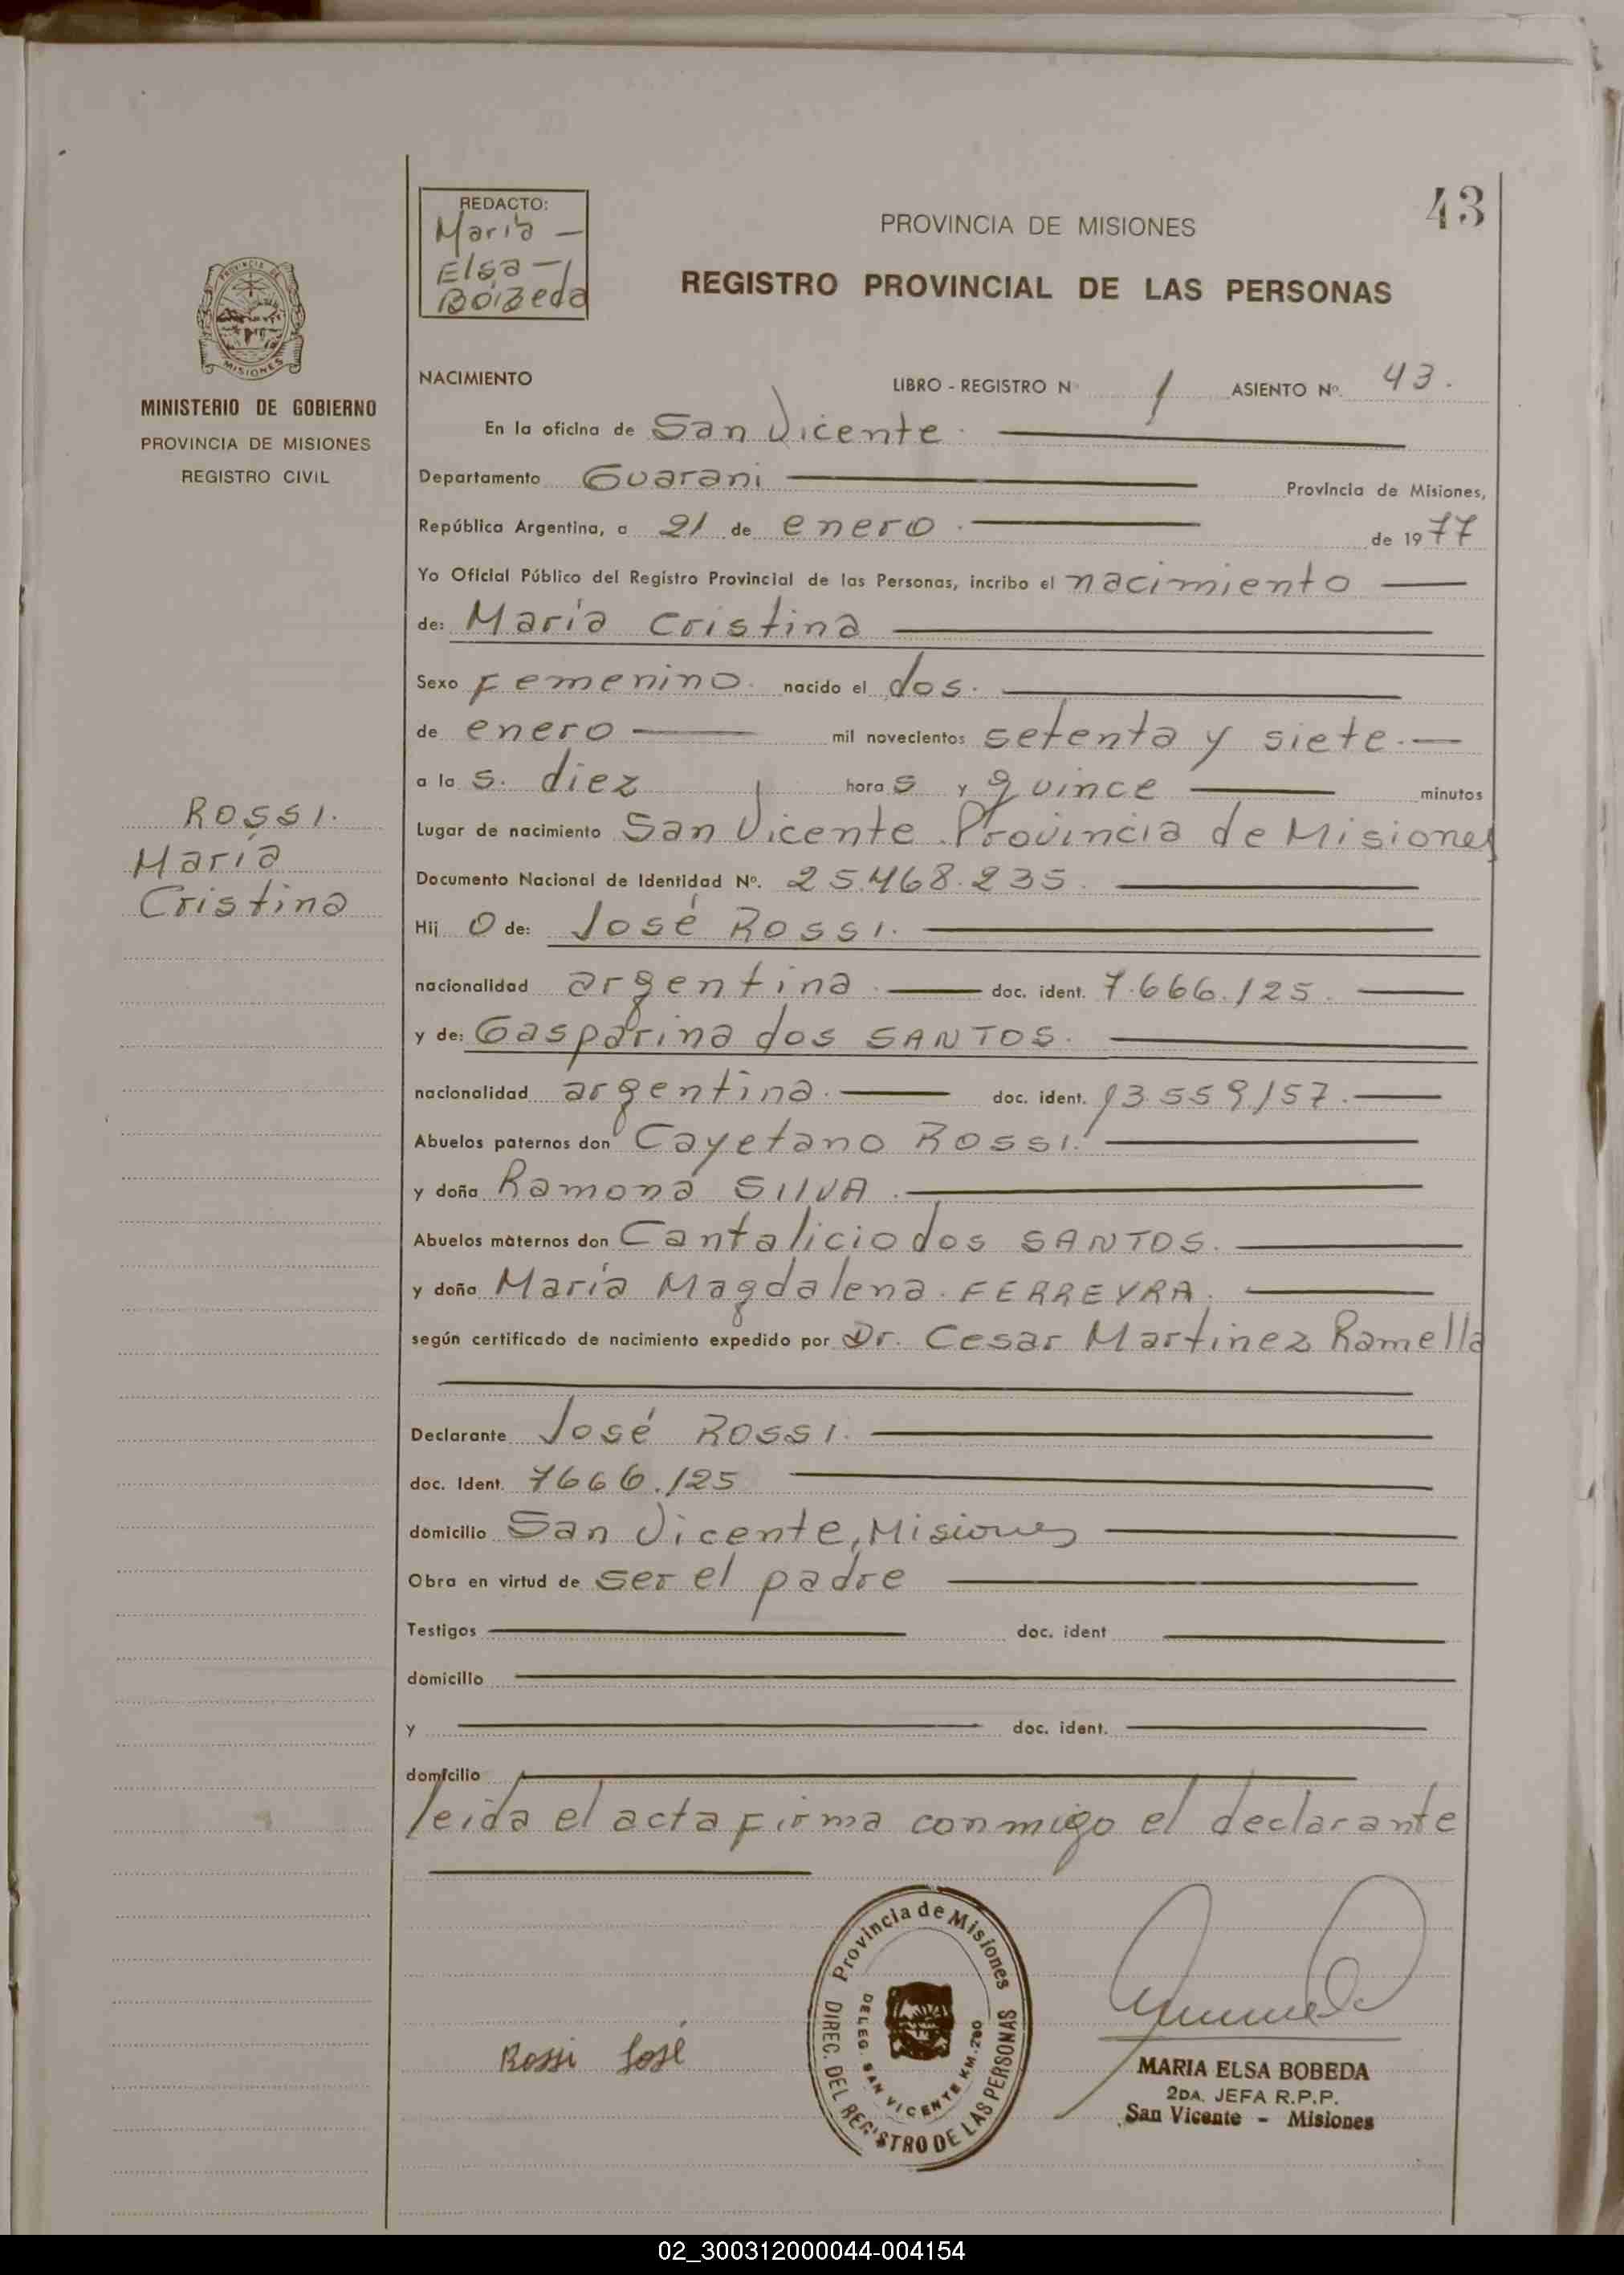 43
REDACTO:
Maria -
Elsa -
Bóbeda
PROVINCIA DE MISIONES
REGISTRO PROVINCIAL DE LAS PERSONAS
PROVINCIA DE
MISIONES
MINISTERIO DE GOBIERNO
PROVINCIA DE MISIONES
REGISTRO CIVIL
NACIMIENTO LIBRO - REGISTRO N° 1 ASIENTO Nº. 43.
En la oficina de San Vicente.
Departamento Guarani Provincia de Misiones,
República Argentina, a 21 de enero. de 1977
Yo Oficial Público del Registro Provincial de las Personas, incribo el nacimiento
de: María Cristina
Sexo Femenino. nacido el dos.
de enero mil novecientos setenta y siete.
a la s. diez hora s y quince minutos
Lugar de nacimiento San Vicente. Provincia de Misiones
Documento Nacional de Identidad Nº. 25.468.235.
Hij o de: José ROSSI.
nacionalidad argentina. doc. ident. 7.666.125.
y de: Gasparina dos SANTOS.
nacionalidad argentina. doc. ident. 13.559.157.
Abuelos paternos don Cayetano ROSSI.
y doña Ramona SILVA.
Abuelos maternos don Cantalicio dos SANTOS.
y doña María Magdalena. FERREYRA.
según certificado de nacimiento expedido por Dr. Cesar Martinez Ramella
Declarante José ROSSI.
doc. Ident. 7666.125
domicilio San Vicente, Misiones
Obra en virtud de ser el padre
Testigos doc. ident
domicilio
y doc. ident.
domicilio
leida el acta firma conmigo el declarante
ROSSI.
María
Cristina
Rossi José
Provincia de Misiones
DIREC. DEL REGISTRO DE LAS PERSONAS
DELEG. SAN VICENTE KM. 280
MARIA ELSA BOBEDA
2DA. JEFA R.P.P.
San Vicente - Misiones
02_300312000044-004154